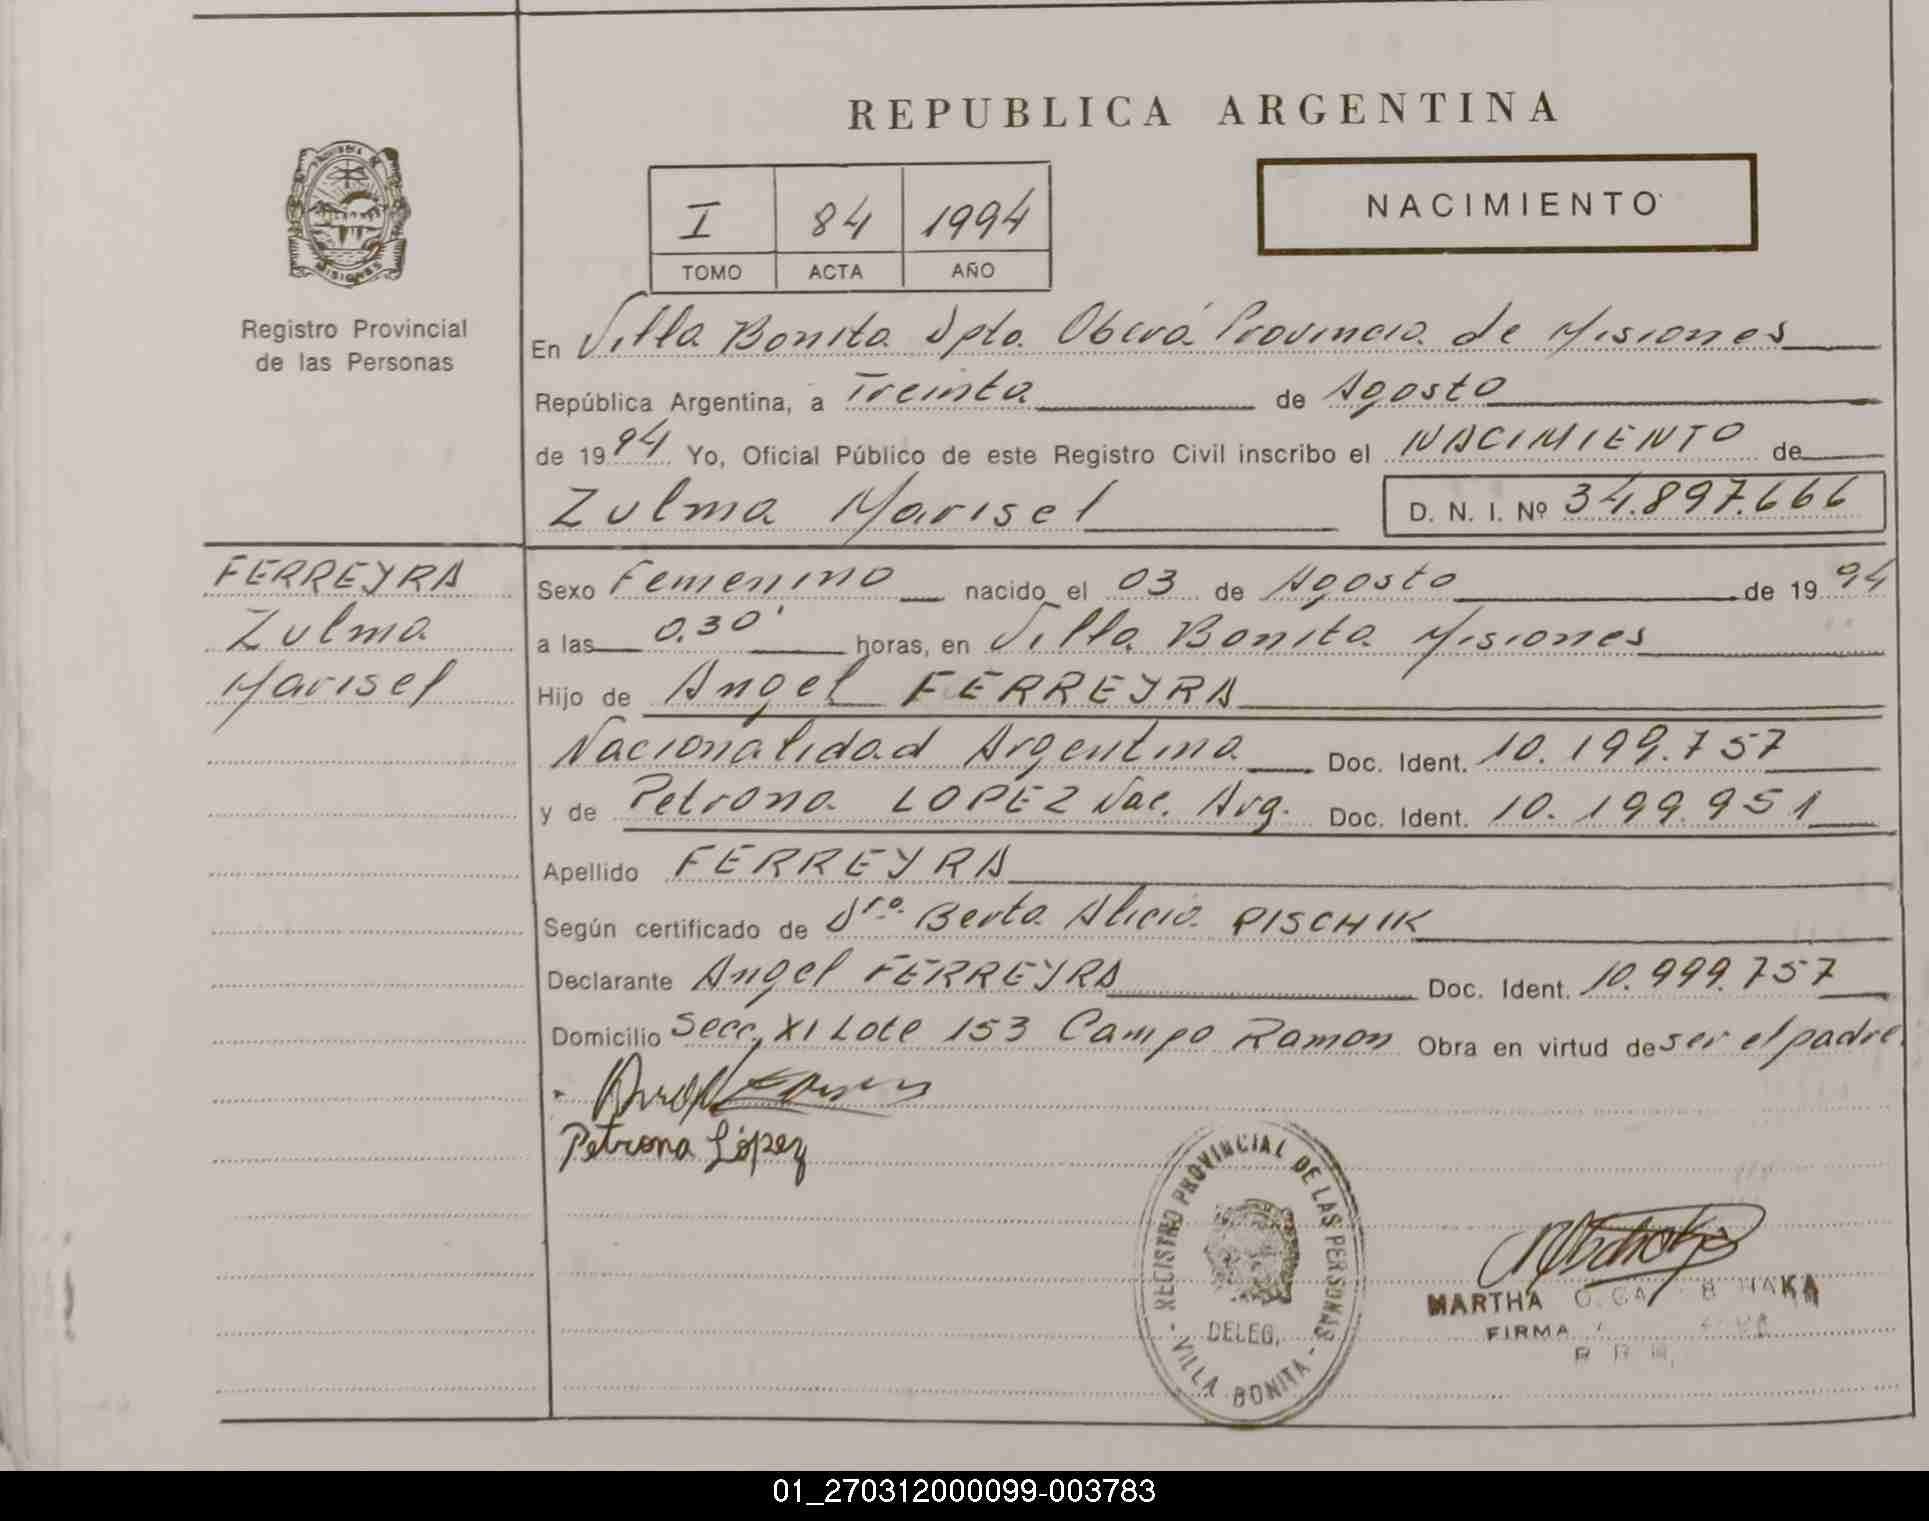 REPUBLICA ARGENTINA
NACIMIENTO
I 84 1994
TOMO ACTA AÑO
MISIONES
Registro Provincial
de las Personas
En Villa Bonita Dpto. Oberá Provincia de Misiones
República Argentina, a Treinta de Agosto
de 1994 Yo, Oficial Público de este Registro Civil inscribo el NACIMIENTO de
Zulma Marisel D. N. I. Nº 34.897.666
FERREYRA
Zulma
Marisel
Sexo Femenino nacido el 03 de Agosto de 1994
a las 0.30' horas, en Villa Bonita Misiones
Hijo de Angel FERREYRA
Nacionalidad Argentina Doc. Ident. 10.199.757
y de Petrona LOPEZ Nac. Arg. Doc. Ident. 10.199.951
Apellido FERREYRA
Según certificado de Dra. Berta Alicia PISCHIK
Declarante Angel FERREYRA Doc. Ident. 10.999.757
Domicilio Secc. XI Lote 153 Campo Ramon Obra en virtud de ser el padre.
Petrona López
REGISTRO PROVINCIAL DE LAS PERSONAS
DELEG.
- VILLA BONITA -
MARTHA
FIRMA
01_270312000099-003783